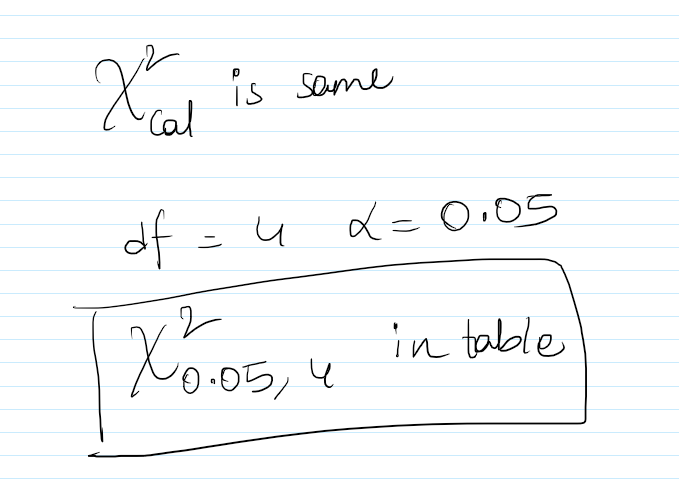 χ²cal is same
df = 4 α = 0.05
χ²0.05, 4 in table